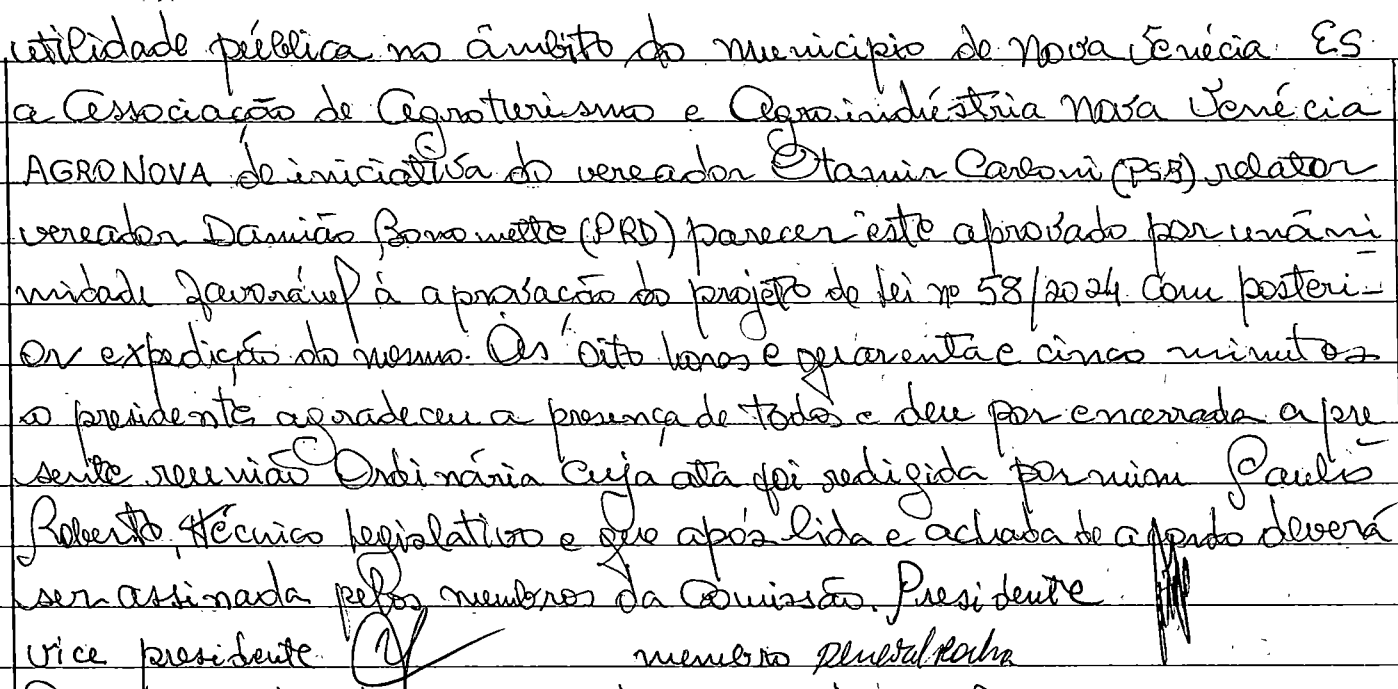 utilidade pública no âmbito do município de Nova Venécia ES
a Associação de Agroturismo e Agroindústria Nova Venécia
AGRONOVA de iniciativa do vereador Otamir Carloni (PSB) relator
vereador Damião Bonomette (PRD) parecer este aprovado por unâni
midade favorável à aprovação do projeto de lei nº 58/2024 com posteri-
or expedição do mesmo. Às oito horas e quarenta e cinco minutos
o presidente agradeceu a presença de todos e deu por encerrada a pre
sente reunião Ordinária cuja ata foi redigida por mim Paulo
Roberto, técnico legislativo e que após lida e achada de acordo deverá
ser assinada pelos membros da Comissão. Presidente
vice presidente membro